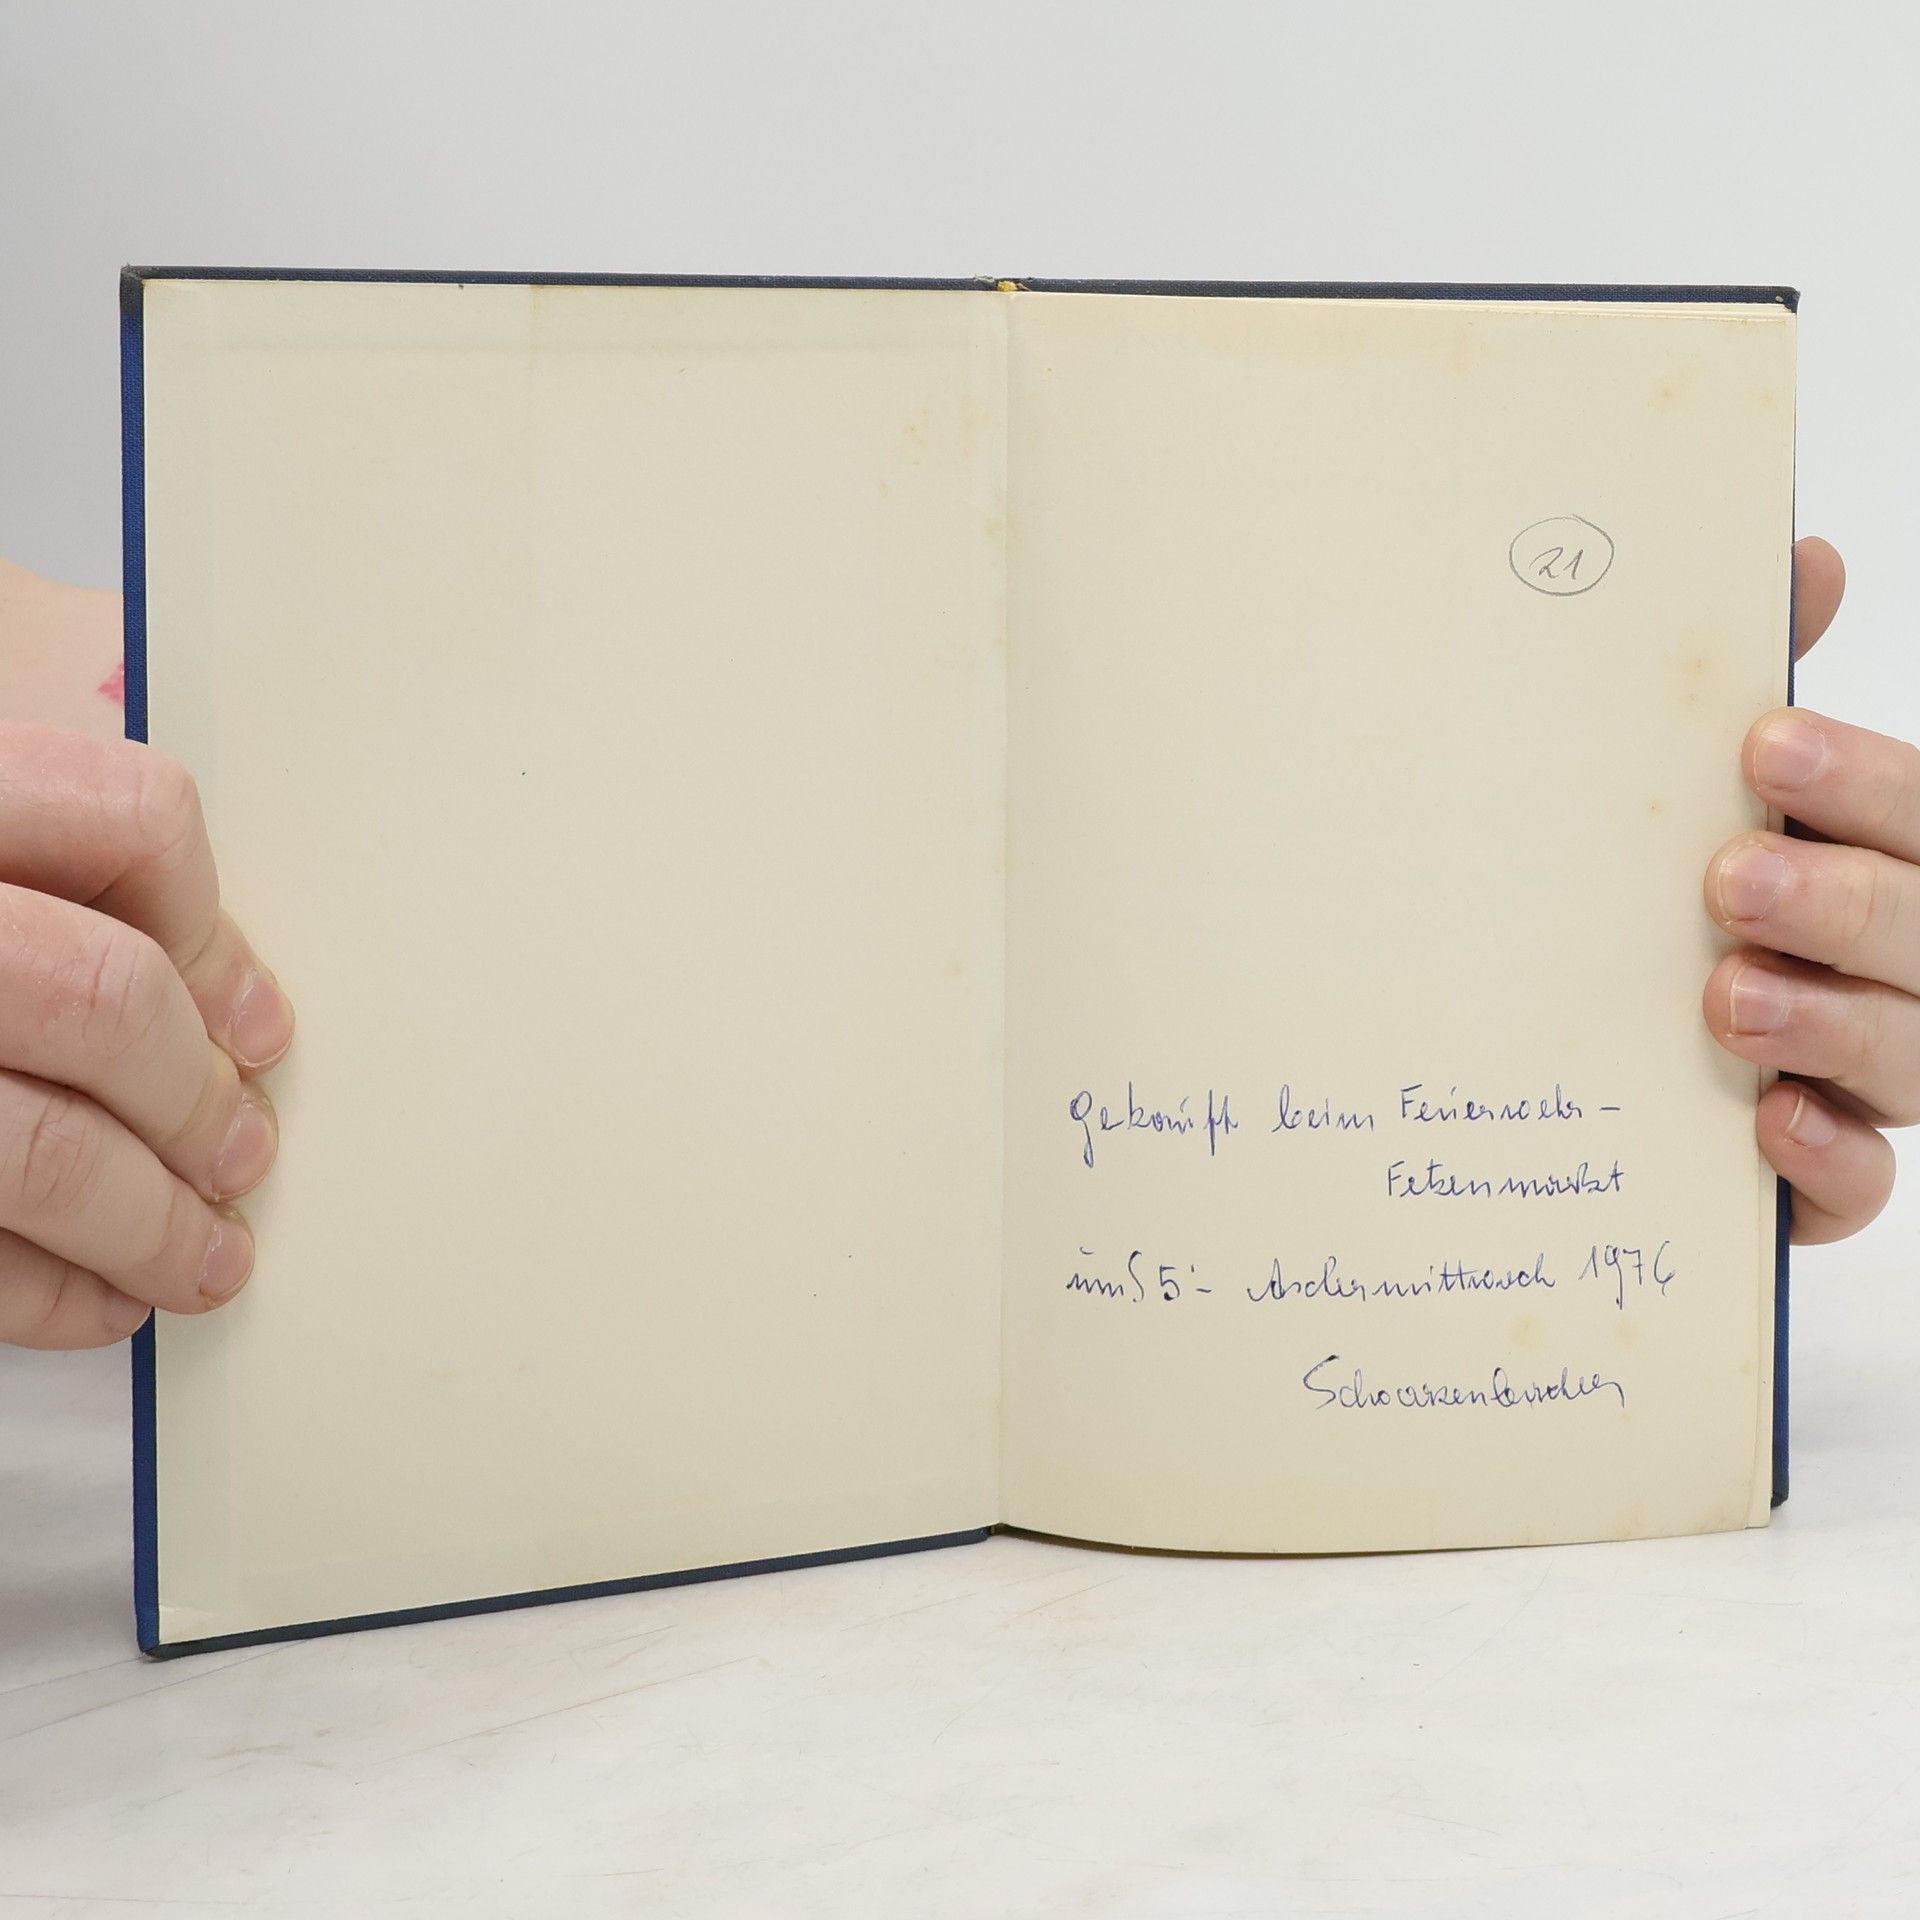 21
Gekauft beim Feuerwehr-
Fetzenmarkt
um S 5.- Aschermittwoch 1976
Schwarzenbacher